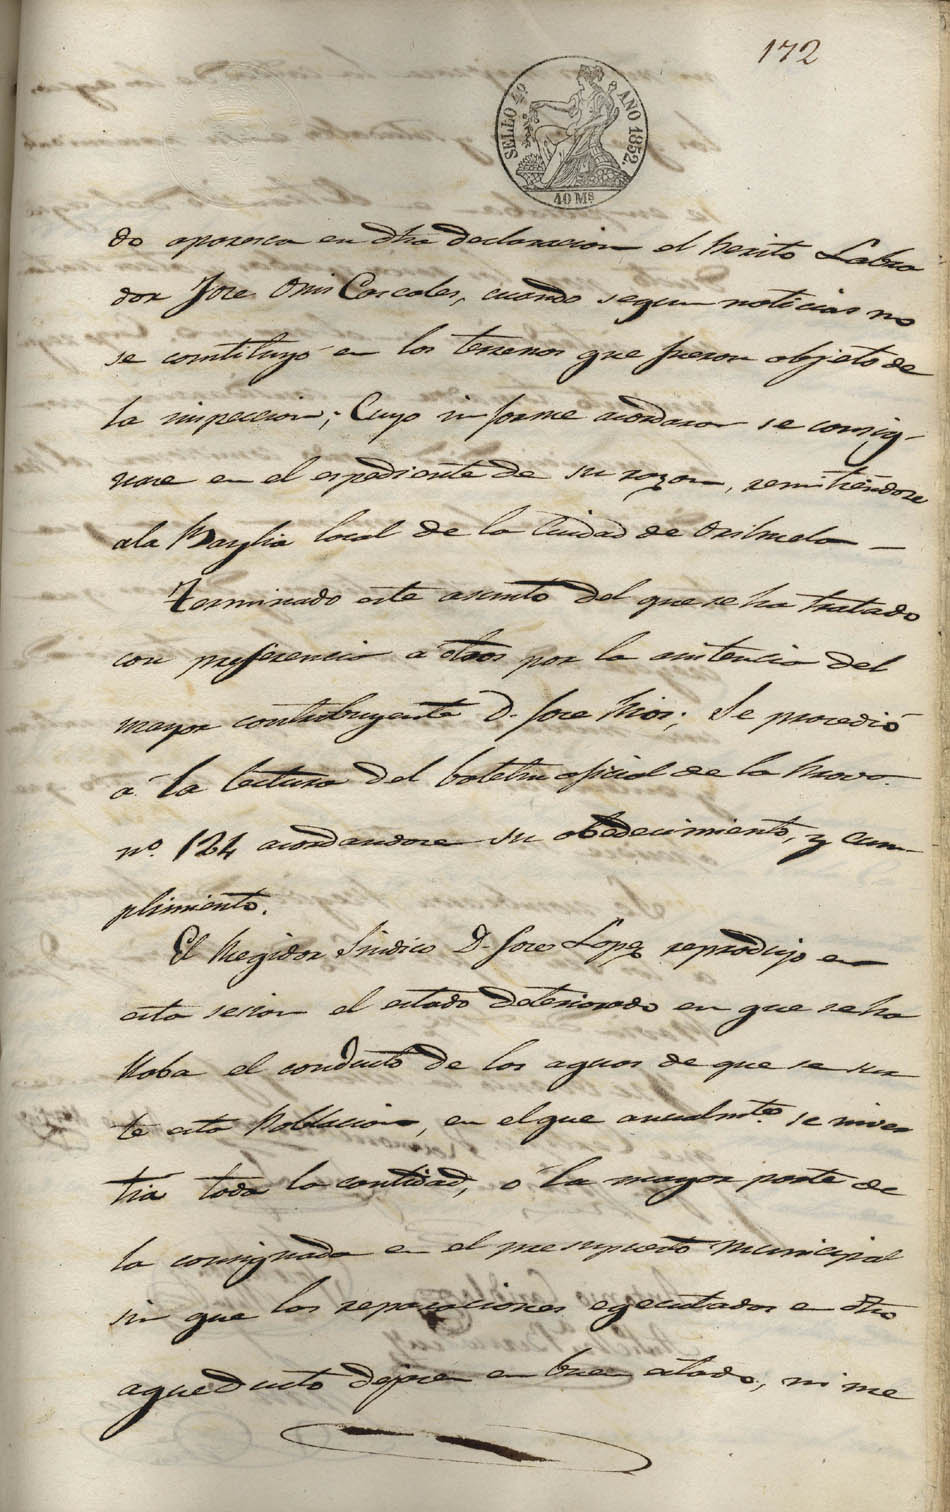 172
SELLO 4º AÑO 1852.
40 Ms
do aparesca en dha declaracion el Perito Labra
dor Jose Cascales, cuando segun noticias no
se contituyó en los terrenos que fueron objeto de
la inspeccion; Cuyo informe acordaron se consig-
nare en el espediente de su razon, remitiendose
ala Baylia local de la Ciudad de Orihuela —
Terminado este asunto del que se ha tratado
con preferencia a otros por la asistencia del
mayor contribuyente D. Jose; Se procedió
á la lectura del boletin oficial de la Prova
nº. 124 acordandose su obedecimiento, y cum-
plimiento.
El Regidor Sindico D. Jose Lopez reprodujo en
esta sesion el estado deteriorado en que se ha
llaba el conducto de las aguas de que se sur
te esta Poblacion, en el que anualmte. se inver
tiá toda la cantidad, ó la mayor parte de
la consignada en el presupuesto municipal
sin que las reparaciones egecutadas en dho
aqueducto dejen en buen estado, ni me